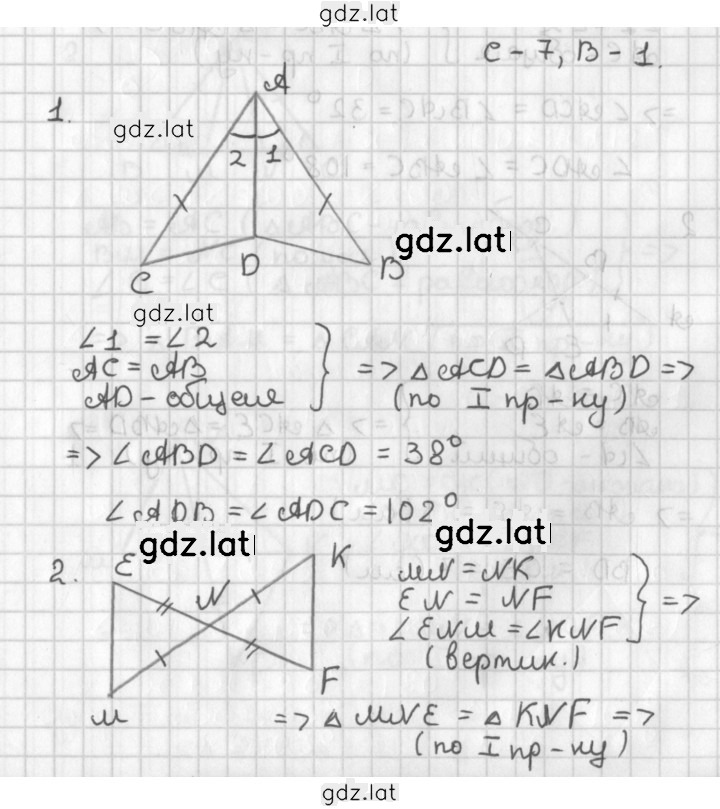 gdz.lat
С-7, В-1.
1.
A
gdz.lat
2 1
gdz.lat
C D B
gdz.lat
∠1 = ∠2
AC = AB
AD - общая
=> △ACD = △ABD =>
(по I пр-ку)
=> ∠ABD = ∠ACD = 38°
∠ADB = ∠ADC = 102°
gdz.lat gdz.lat
2.
E K
N
M F
MN = NK
EN = NF
∠ENM = ∠KNF
(вертик.)
=>
=> △MNE = △KNF =>
(по I пр-ку)
gdz.lat